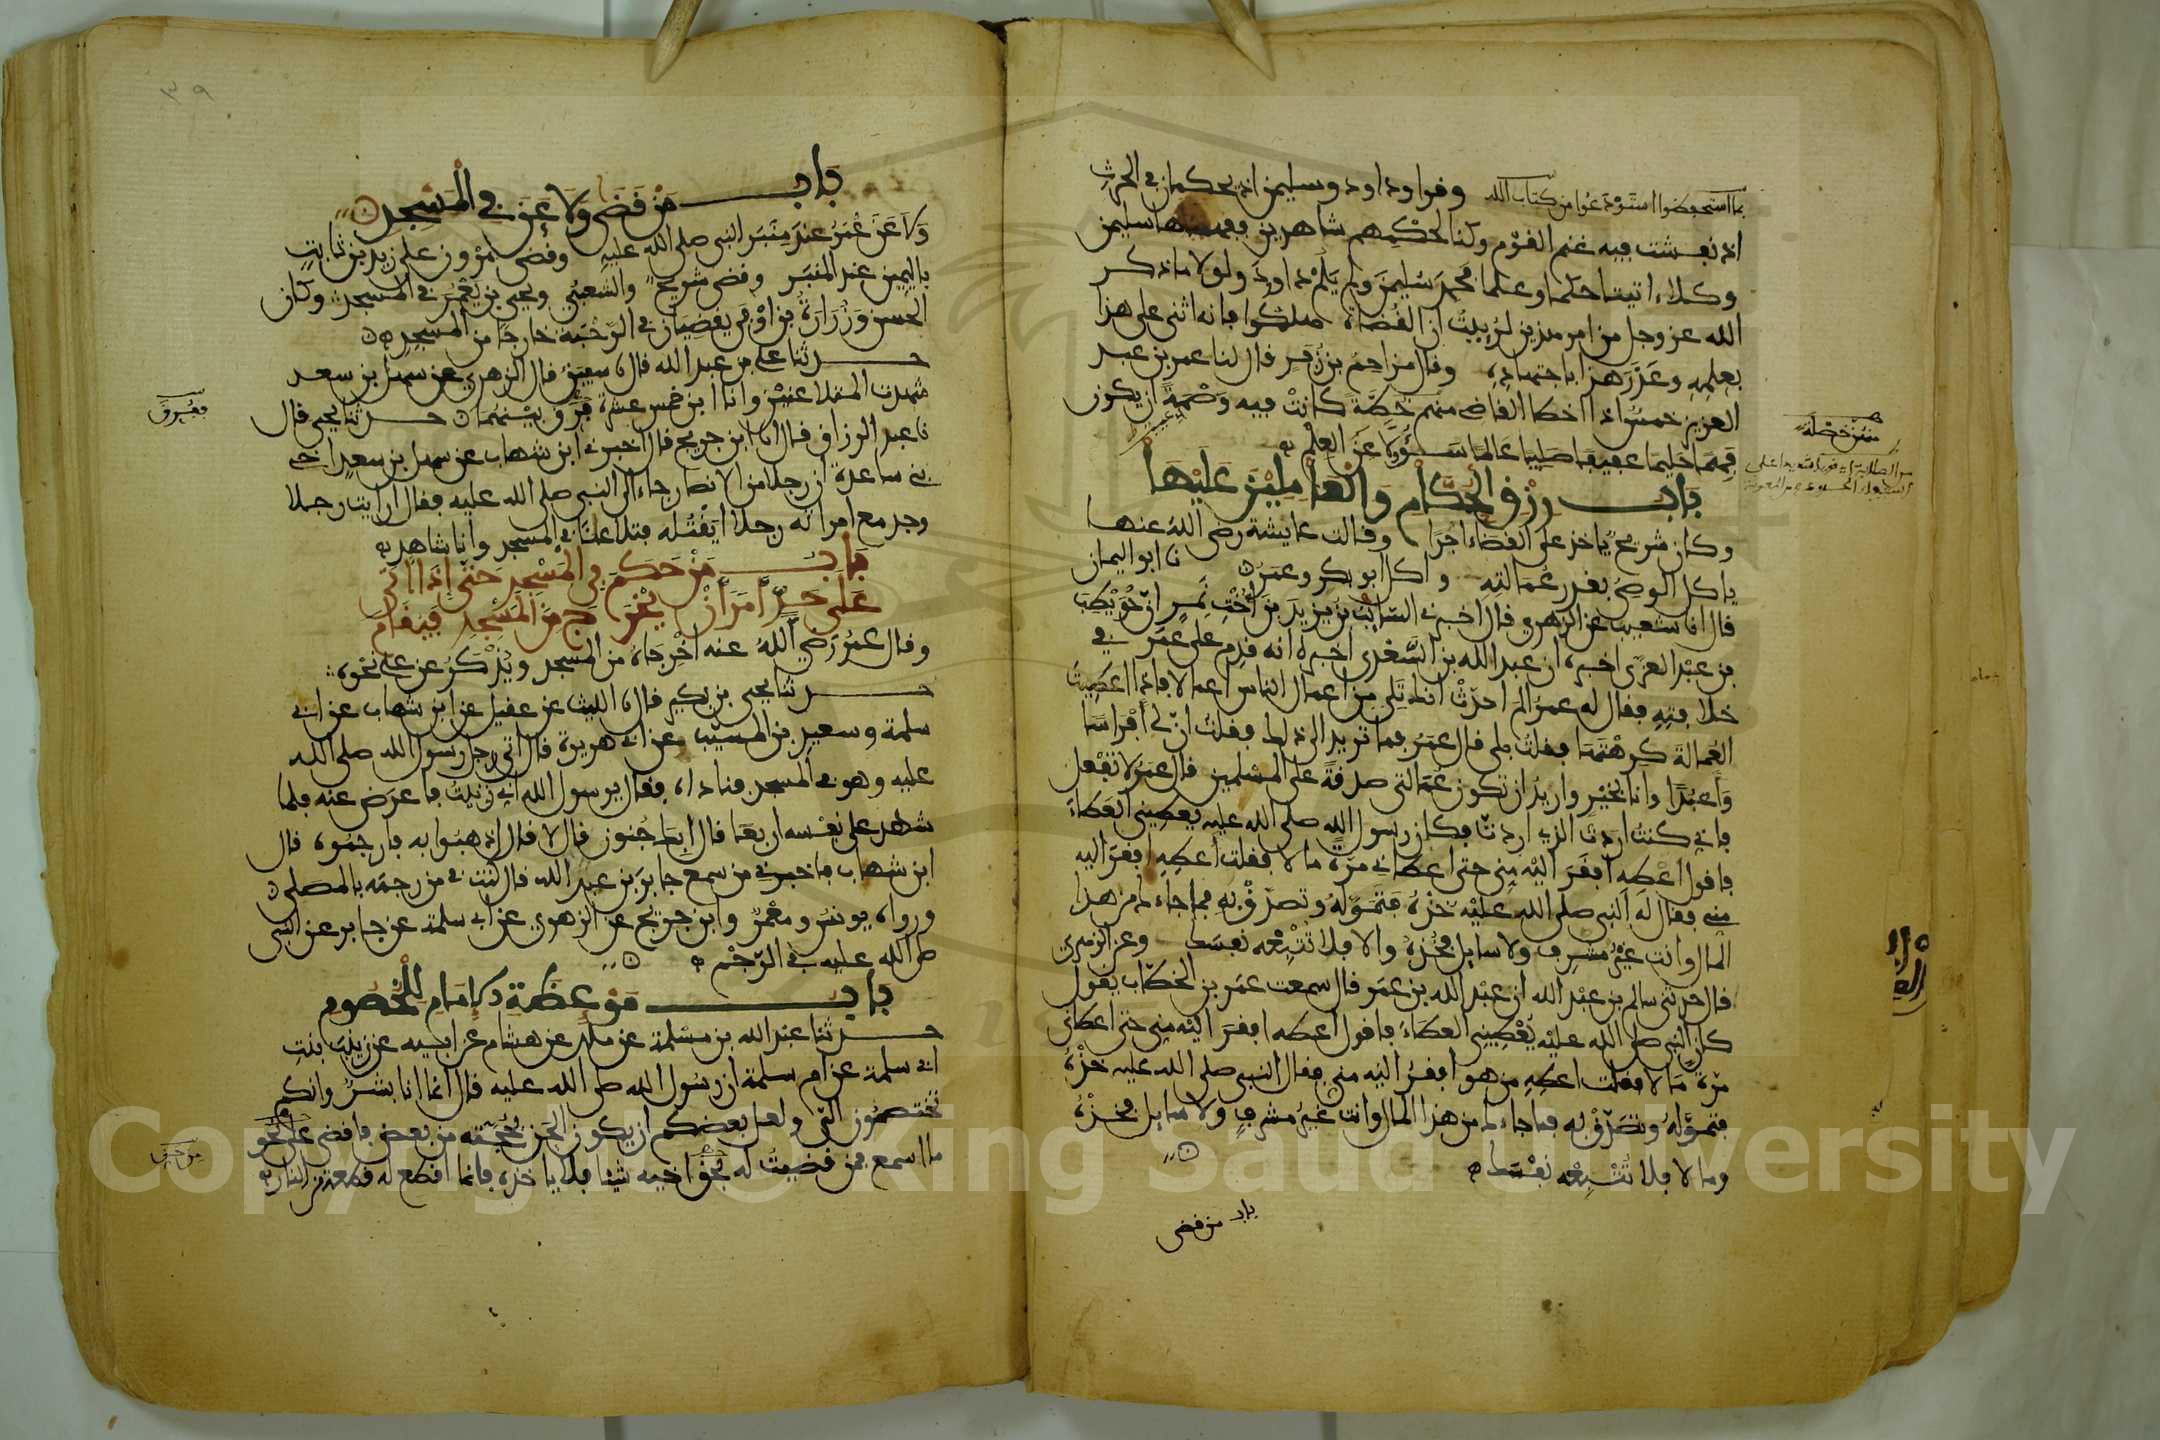 بما استحفظوا استودعوا من كتاب الله وقرا وداود وسليمن اذ يحكمان في الحرث
اذ نفشت فيه غنم القوم وكنا لحكمهم شاهدين ففهمناها سليمن
وكلا اتينا حكما وعلما فحمد سليمن ولم يلم داود ولولا ما ذكر
الله عز وجل من امر هذين لرييت ان القضاة هلكوا فانه اثنى على هذا
بعلمه وعذر هذا باجتهاده وقال مزاحم بن زفر قال لنا عمر بن عبد
العزيز خمس اذا اخطا القاضي منهم خطة كانت فيه وصمة ان يكون
فهما حليما عفيفا صليبا عالما سؤولا عن العلم
باب رزق الحكام والعاملين عليها
وكان شريح ياخذ على القضاء اجرا وقالت عايشة رضي الله عنها
ياكل الوصي بقدر عمالته واكل ابو بكر وعمر نا ابو اليمان
قال انا شعيب عن الزهري قال اخبرني السايب بن يزيد بن اخت نمر ان حويطب
بن عبد العزى اخبره ان عبد الله بن السعدي اخبره انه قدم على عمر في
خلافته فقال له عمر الم احدث انك تلي من اعمال الناس اعمالا فاذا اعطيت
العمالة كرهتها فقلت بلى قال عمر فما تريد الى ذلك فقلت ان لي افراسا
واعبدا وانا بخير واريد ان تكون عمالتي صدقة على المسلمين قال عمر لا تفعل
فاني كنت اردت الذي اردت فكان رسول الله صلى الله عليه يعطيني العطاء
فاقول اعطه افقر اليه مني حتى اعطاني مرة مالا فقلت اعطه افقر اليه
مني فقال له النبي صلى الله عليه خذه فتموله وتصدق به فما جاءك من هذا
المال وانت غير مشرف ولا سايل فخذه والا فلا تتبعه نفسك وعن الزهري
قال حدثني سالم بن عبد الله ان عبد الله بن عمر قال سمعت عمر بن الخطاب يقول
كان النبي صلى الله عليه يعطيني العطاء فاقول اعطه افقر اليه مني حتى اعطاني
مرة مالا فقلت اعطه من هو افقر اليه مني فقال النبي صلى الله عليه خذه
فتموله وتصدق به فما جاءك من هذا المال وانت غير مشرف ولا سايل فخذه
وما لا فلا تتبعه نفسك
باب من قضى
٣٩
باب من قضى ولاعن في المسجد
ولاعن عمر عند منبر النبي صلى الله عليه وقضى مروان على زيد بن ثابت
باليمين عند المنبر وقضى شريح والشعبي ويحيى بن يعمر في المسجد وكان
الحسن وزرارة بن اوفى يقضيان في الرحبة خارجا من المسجد
حدثنا علي بن عبد الله قال نا سفين قال الزهري عن سهل بن سعد
شهدت المتلاعنين وانا ابن خمس عشرة فرق بينهما حدثنا يحيى قال
نا عبد الرزاق قال انا ابن جريج قال اخبرني ابن شهاب عن سهل بن سعد اخي
بني ساعدة ان رجلا من الانصار جاء الى النبي صلى الله عليه فقال ارايت رجلا
وجد مع امراته رجلا ايقتله فتلاعنا في المسجد وانا شاهد
باب من حكم في المسجد حتى اذا اتى
على حد امر ان يخرج من المسجد فيقام
وقال عمر رضي الله عنه اخرجاه من المسجد ويذكر عن علي نحوه
حدثنا يحيى بن بكير قال نا الليث عن عقيل عن ابن شهاب عن ابي
سلمة وسعيد بن المسيب عن ابي هريرة قال اتى رجل رسول الله صلى الله
عليه وهو في المسجد فناداه فقال يرسول الله اني زنيت فاعرض عنه فلما
شهد على نفسه اربعا قال ابك جنون قال لا قال اذهبوا به فارجموه قال
ابن شهاب فاخبرني من سمع جابر بن عبد الله قال كنت في من رجمه بالمصلى
ورواه يونس ومعمر وابن جريج عن الزهري عن ابي سلمة عن جابر عن النبي
صلى الله عليه في الرجم
باب موعظة الامام للخصوم
حدثنا عبد الله بن مسلمة عن ملك عن هشام عن ابيه عن زينب بنت
ابي سلمة عن ام سلمة ان رسول الله صلى الله عليه قال انما انا بشر وانكم
تختصمون الي ولعل بعضكم ان يكون الحن بحجته من بعض فاقضي على نحو
ما اسمع فمن قضيت له بحق اخيه شيئا فلا ياخذه فانما اقطع له قطعة من النار
Copyright © King Saud University